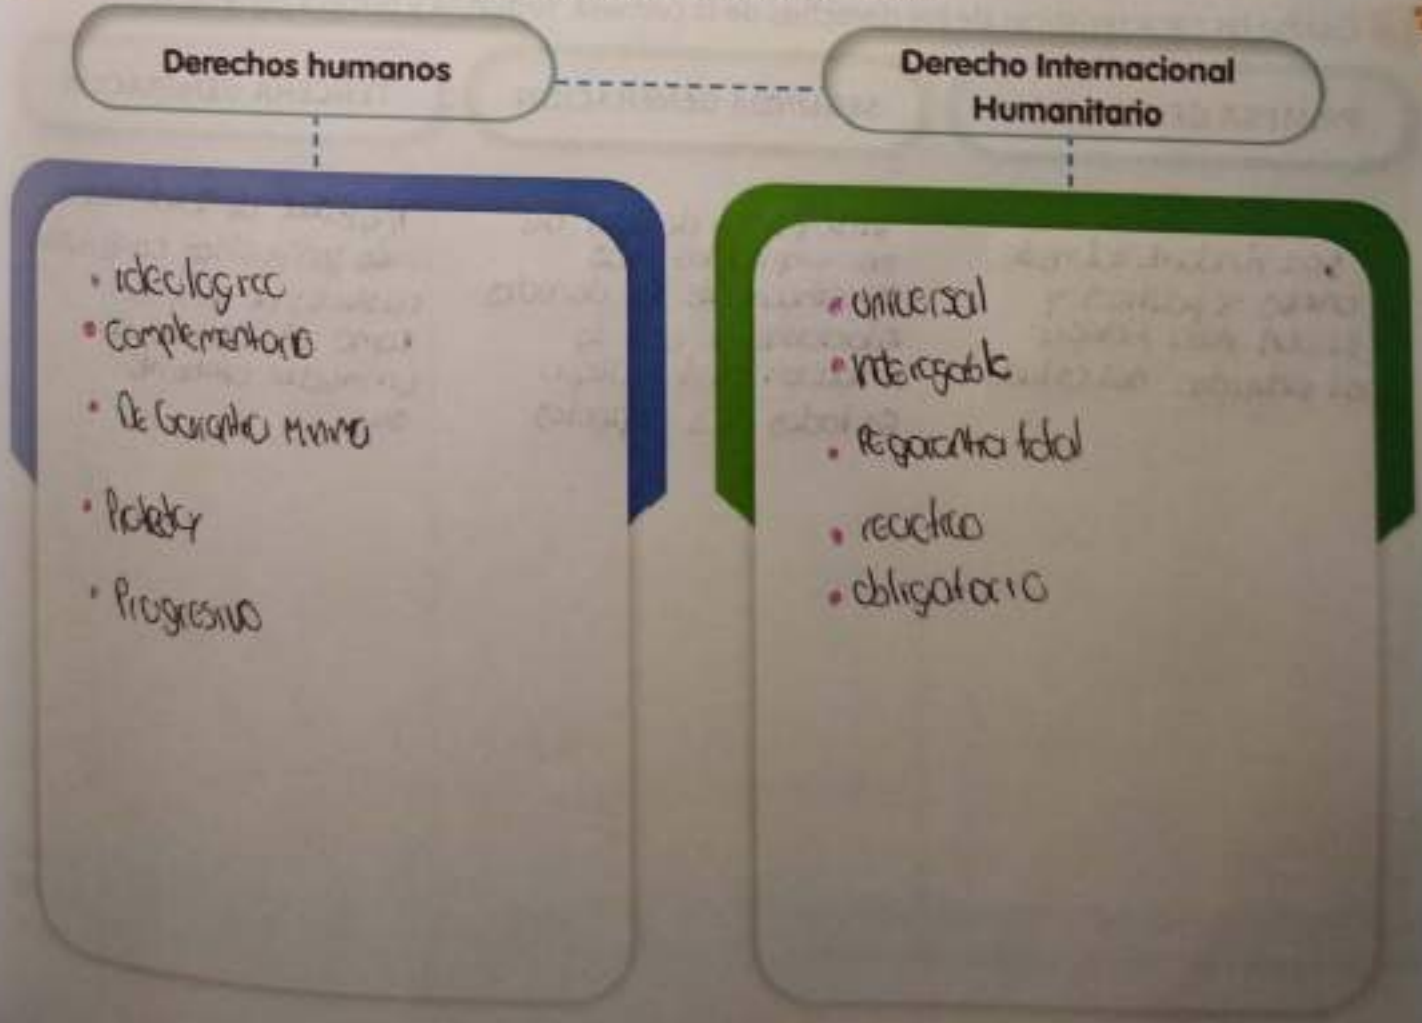 Derechos humanos
Derecho Internacional
Humanitario
• ideologico
• Complementario
• De Garantia Minima
• Protector
• Progresivo
• universal
• inderogable
• De garantia total
• reactivo
• obligatorio